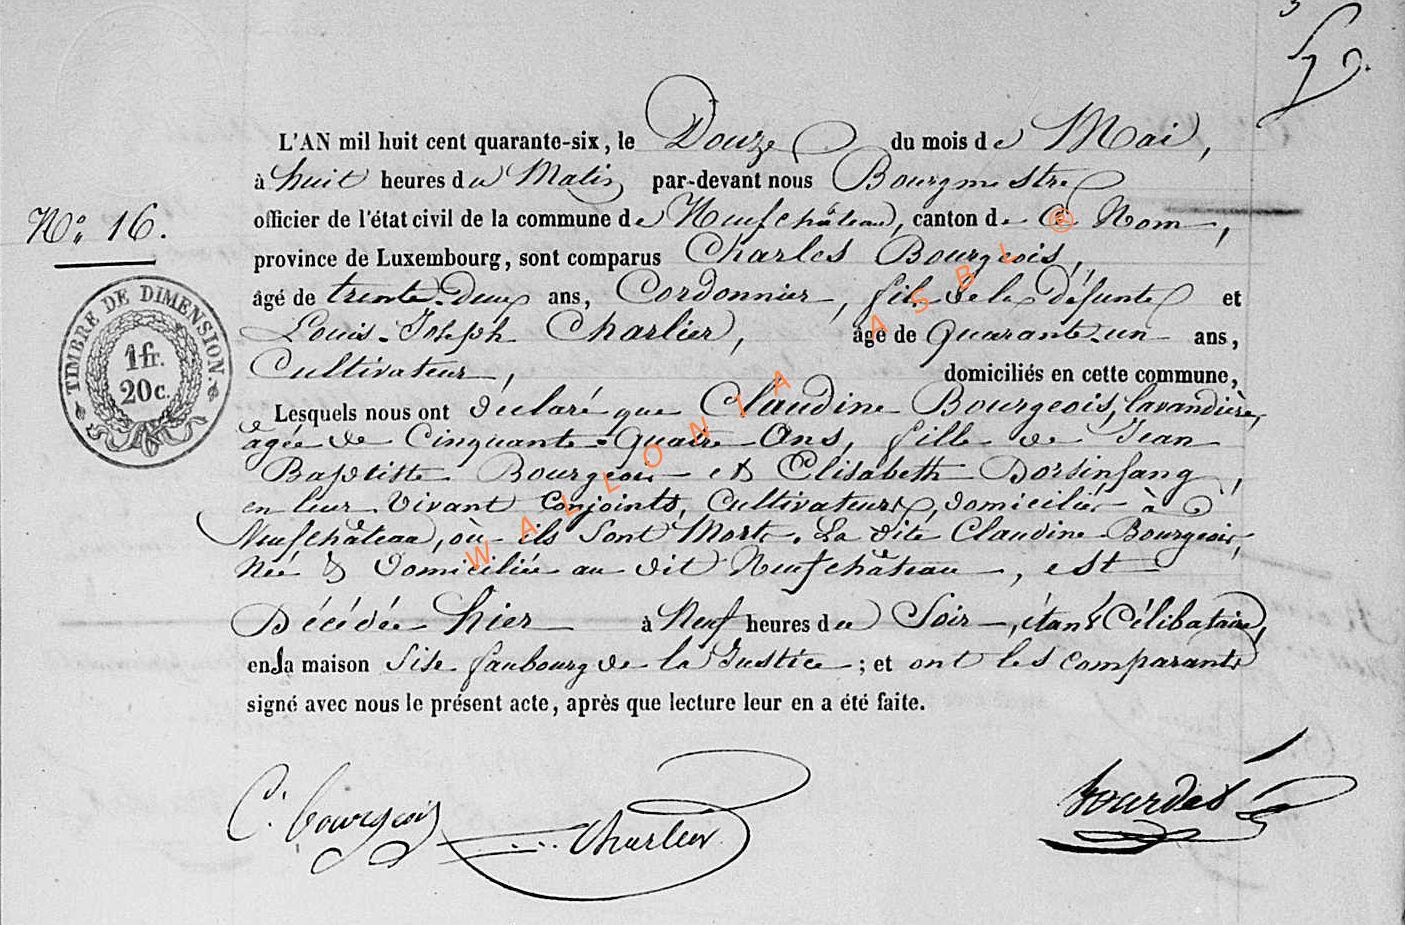 L'AN mil huit cent quarante-six, le Douze du mois de Mai,
à huit heures du Matin par-devant nous Bourgmestre
officier de l'état civil de la commune de Neufchâteau, canton de Ce Nom,
N° 16.
province de Luxembourg, sont comparus Charles Bourgeois,
âgé de trente-Deux ans, Cordonnier, fils de la défunte et
Louis-Joseph Charlier, âgé de Quarante-un ans,
Cultivateur, domiciliés en cette commune,
TIMBRE DE DIMENSION
1 fr.
20 c.
Lesquels nous ont déclaré que Claudine Bourgeois, lavandière,
agée de Cinquante-quatre Ans, fille de Jean
Baptiste Bourgeois et Elisabeth Dorsinfang,
en leur Vivant Conjoints, Cultivateurs, domiciliés à
Neufchâteau, où ils sont Morts. La dite Claudine Bourgeois,
Née & domiciliée au dit Neufchâteau, est
Décédée hier à Neuf heures du Soir, étant Célibataire,
en la maison Sise faubourg de la Justice; et ont les comparants
signé avec nous le présent acte, après que lecture leur en a été faite.
C. bourgeois Charlier Bourdet
WALLONIA ASBL ®